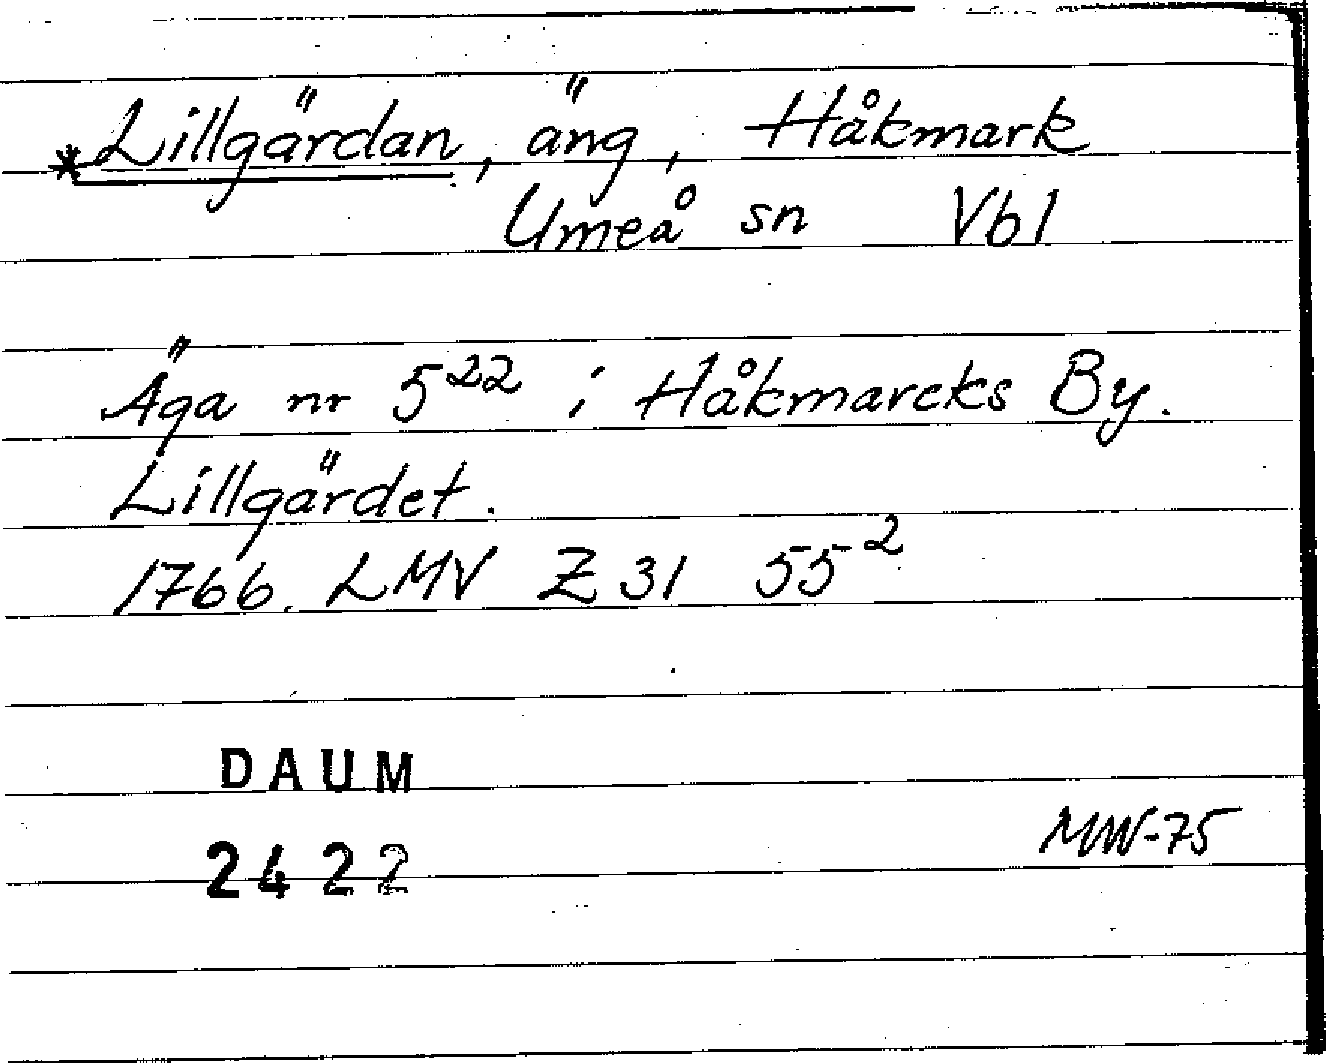 *Lillgärdan, äng, Håkmark
Umeå sn Vbl
Äga nr 5²² i Håkmarcks By.
Lillgärdet.
1766. LMV Z 31 55²
DAUM
MW-75
2422